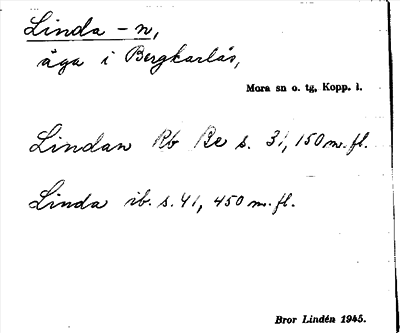 Linda - n,
äga i Bergkarlås,
Mora sn o. tg, Kopp. l.
Lindan Rb Be s. 31, 150 m. fl.
Linda ib. s. 41, 450 m. fl.
Bror Lindén 1945.